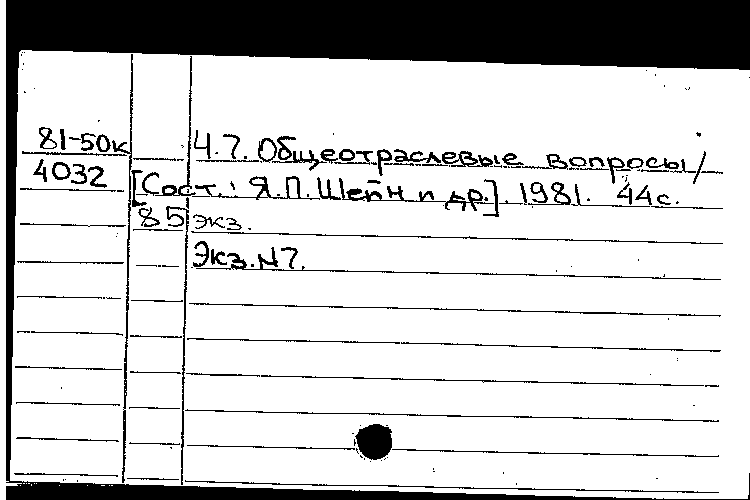 81-50к Ч.7. Общеотраслевые вопросы/
4032 [Сост.: Я.П.Шейн и др.]. 1981. 44с.
85 экз.
Экз.N7.